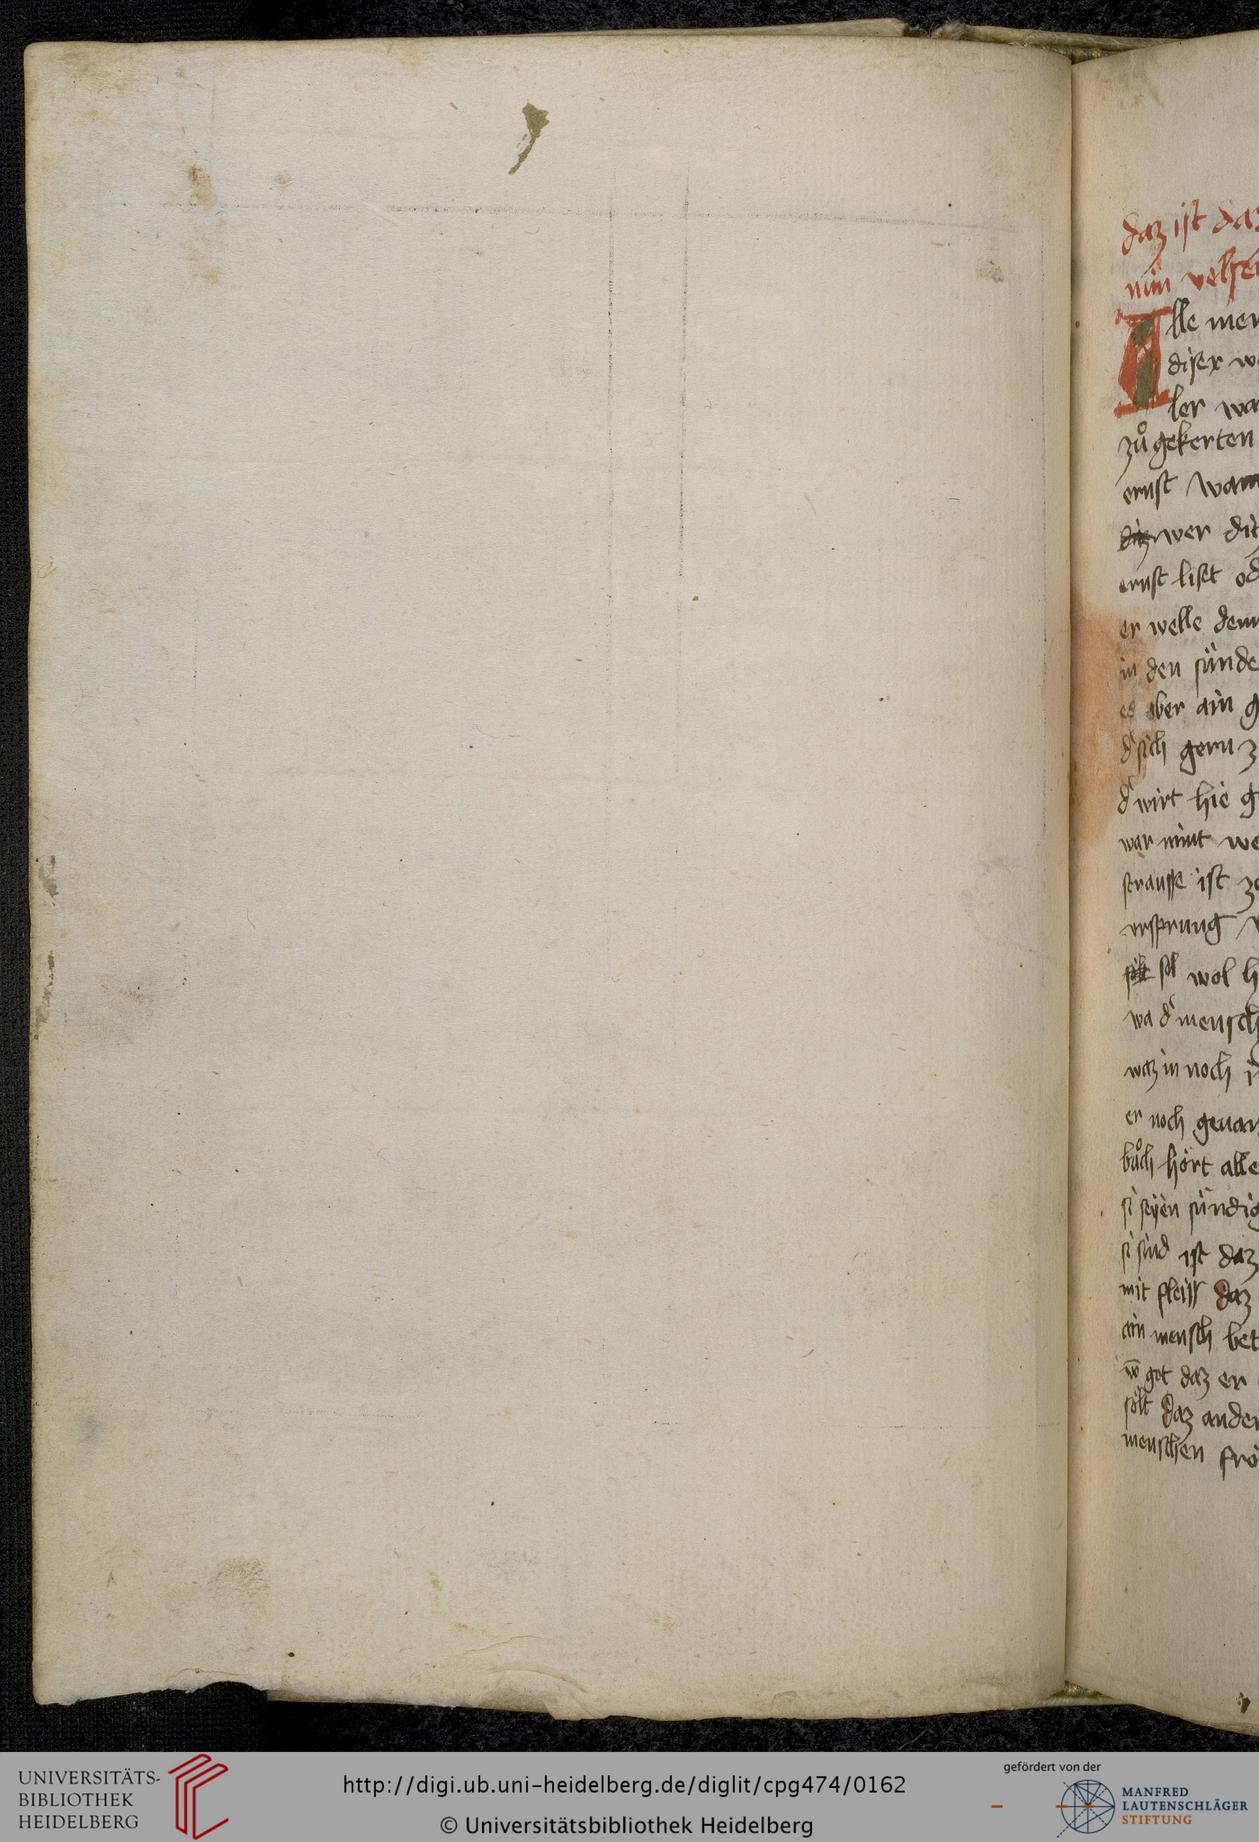 daz ist daz
nün velsen
Alle men
diser w
ler wa
zuͦ gekerten
ernst wann
wer dit
ernst liset od
er welle denn
in den sünde
es aber ain g
d' sich gern z
d' wirt hie g
war nimt we
strausse ist ze
vrsprung v
sol wol h
wa d' mensch
waz in noch i
er noch genan
buͦch hört alle
si seyen sündig
si sind ist daz
mit fleiss daz
ain mensch bet
got daz er
sölt daz ander
menschen frö
UNIVERSITÄTS-
BIBLIOTHEK
HEIDELBERG
http://digi.ub.uni-heidelberg.de/diglit/cpg474/0162
© Universitätsbibliothek Heidelberg
gefördert von der
MANFRED
LAUTENSCHLÄGER
STIFTUNG